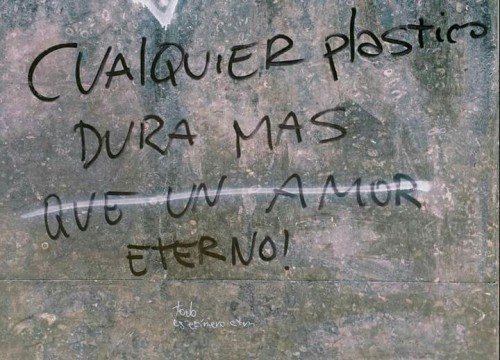 CUALQUIER plastico
DURA MAS
QUE UN AMOR
ETERNO!
todo
es efimero